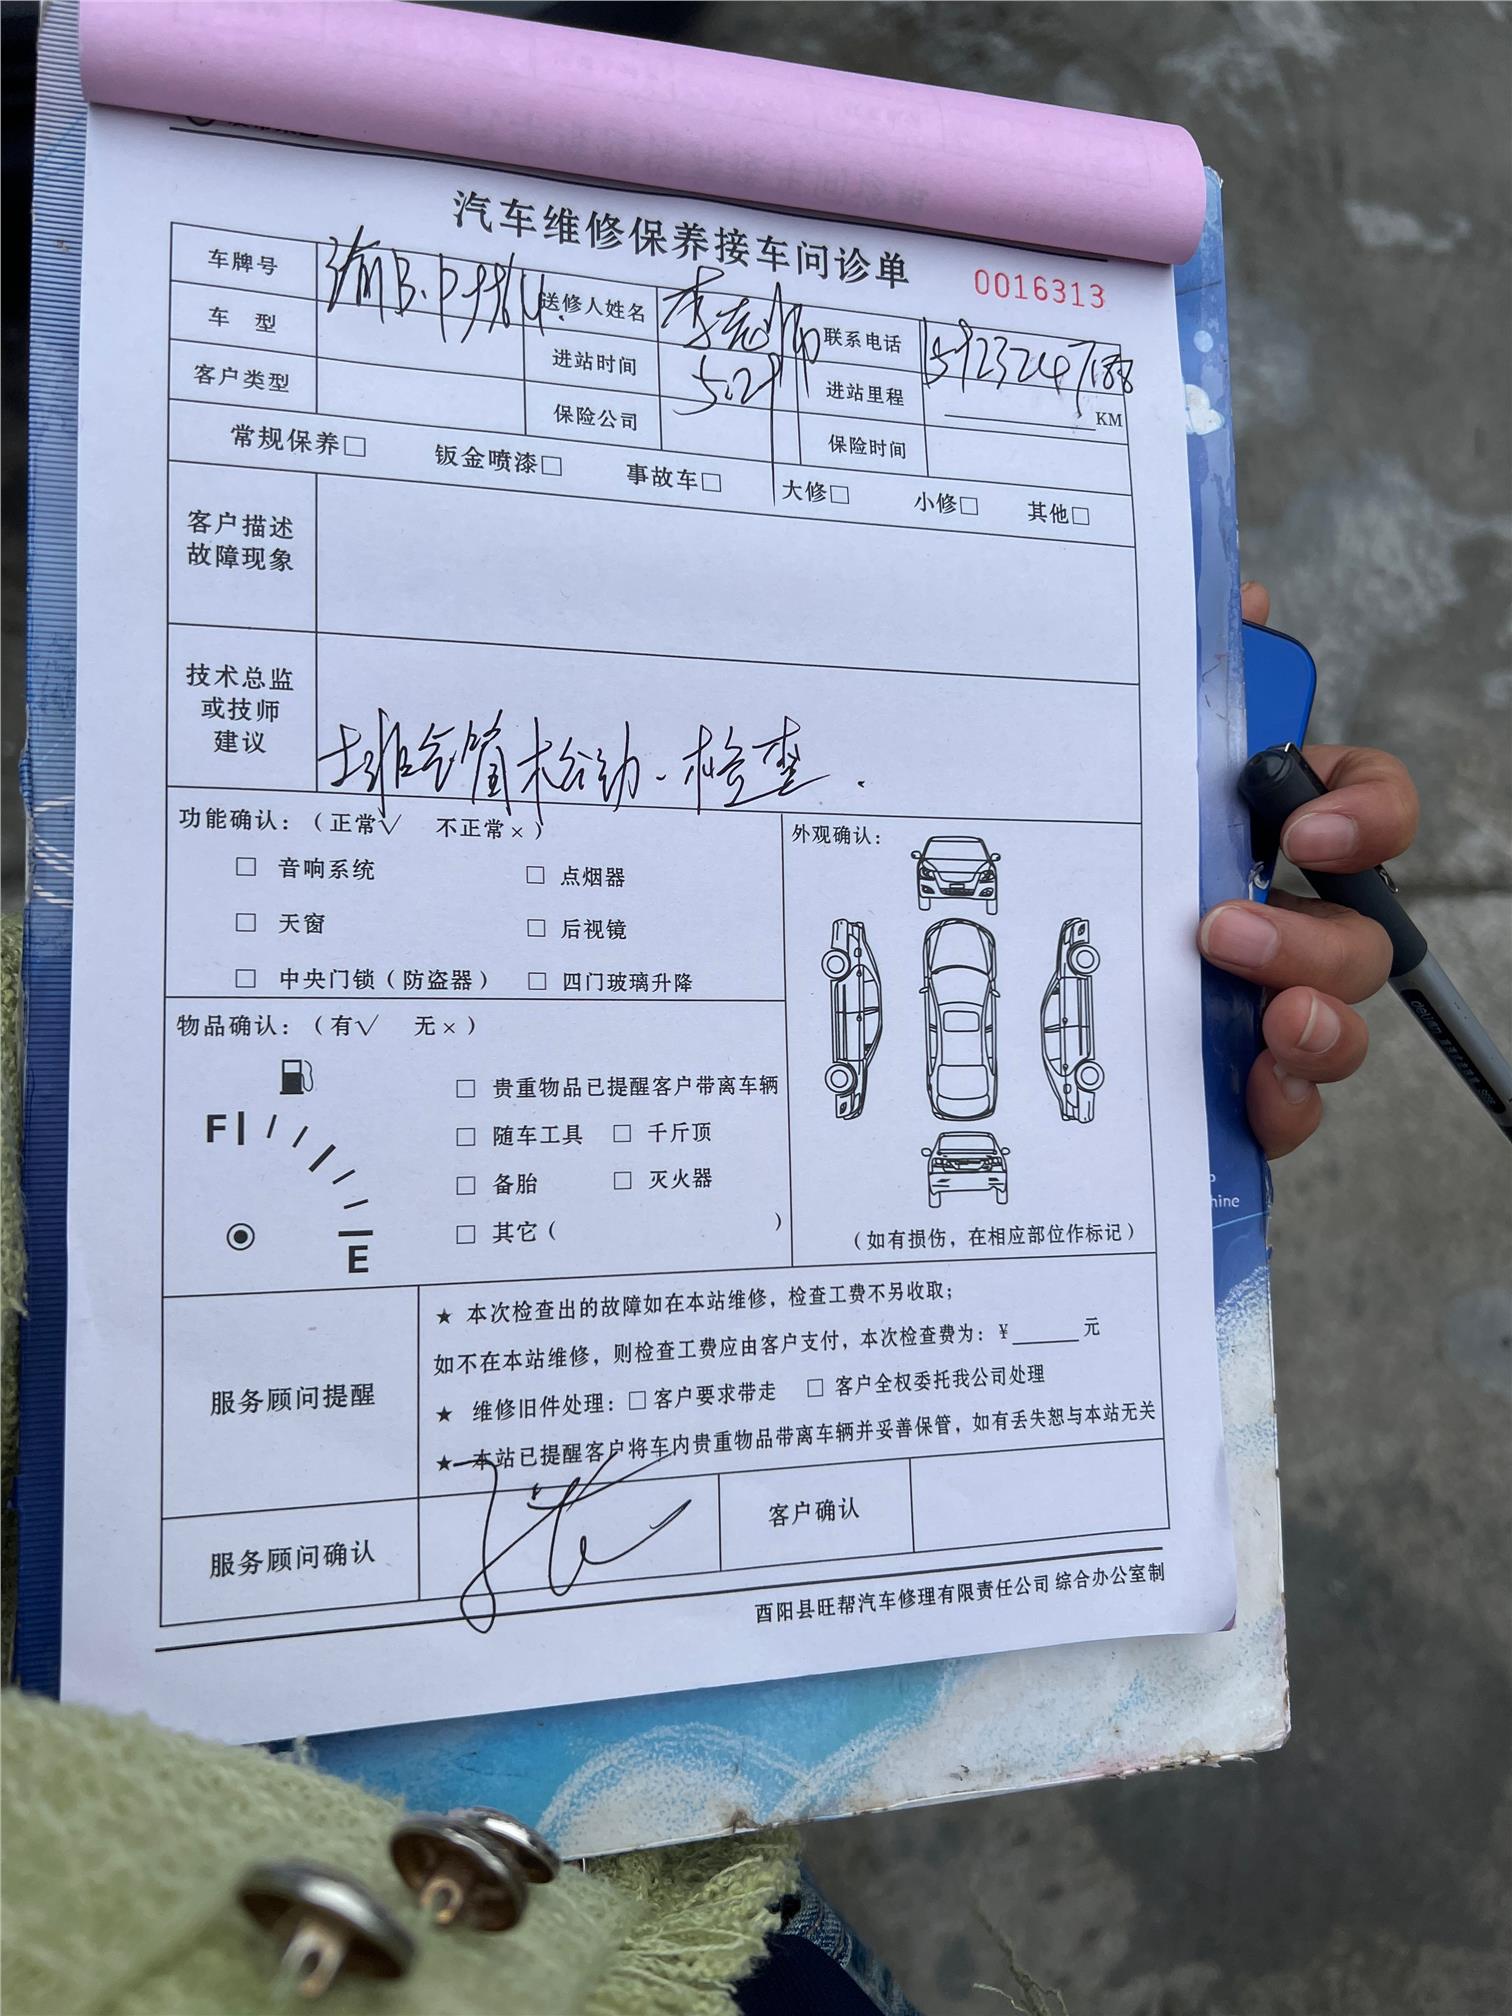 汽车维修保养接车问诊单
0016313
车牌号 送修人姓名 李老师 联系电话
车 型 进站时间 5.29 进站里程 KM
客户类型 保险公司 保险时间
常规保养□ 钣金喷漆□ 事故车□ 大修□ 小修□ 其他□
客户描述
故障现象
技术总监
或技师
建议
排气管松动、检查.
功能确认:(正常√ 不正常×)
□ 音响系统 □ 点烟器
□ 天窗 □ 后视镜
□ 中央门锁(防盗器) □ 四门玻璃升降
外观确认:
(如有损伤,在相应部位作标记)
物品确认:(有√ 无×)
F
E
□ 贵重物品已提醒客户带离车辆
□ 随车工具 □ 千斤顶
□ 备胎 □ 灭火器
□ 其它( )
服务顾问提醒
★ 本次检查出的故障如在本站维修,检查工费不另收取;
如不在本站维修,则检查工费应由客户支付,本次检查费为:¥______元
★ 维修旧件处理:□客户要求带走 □ 客户全权委托我公司处理
★ 本站已提醒客户将车内贵重物品带离车辆并妥善保管,如有丢失恕与本站无关
服务顾问确认 客户确认
酉阳县旺帮汽车修理有限责任公司 综合办公室制
deli